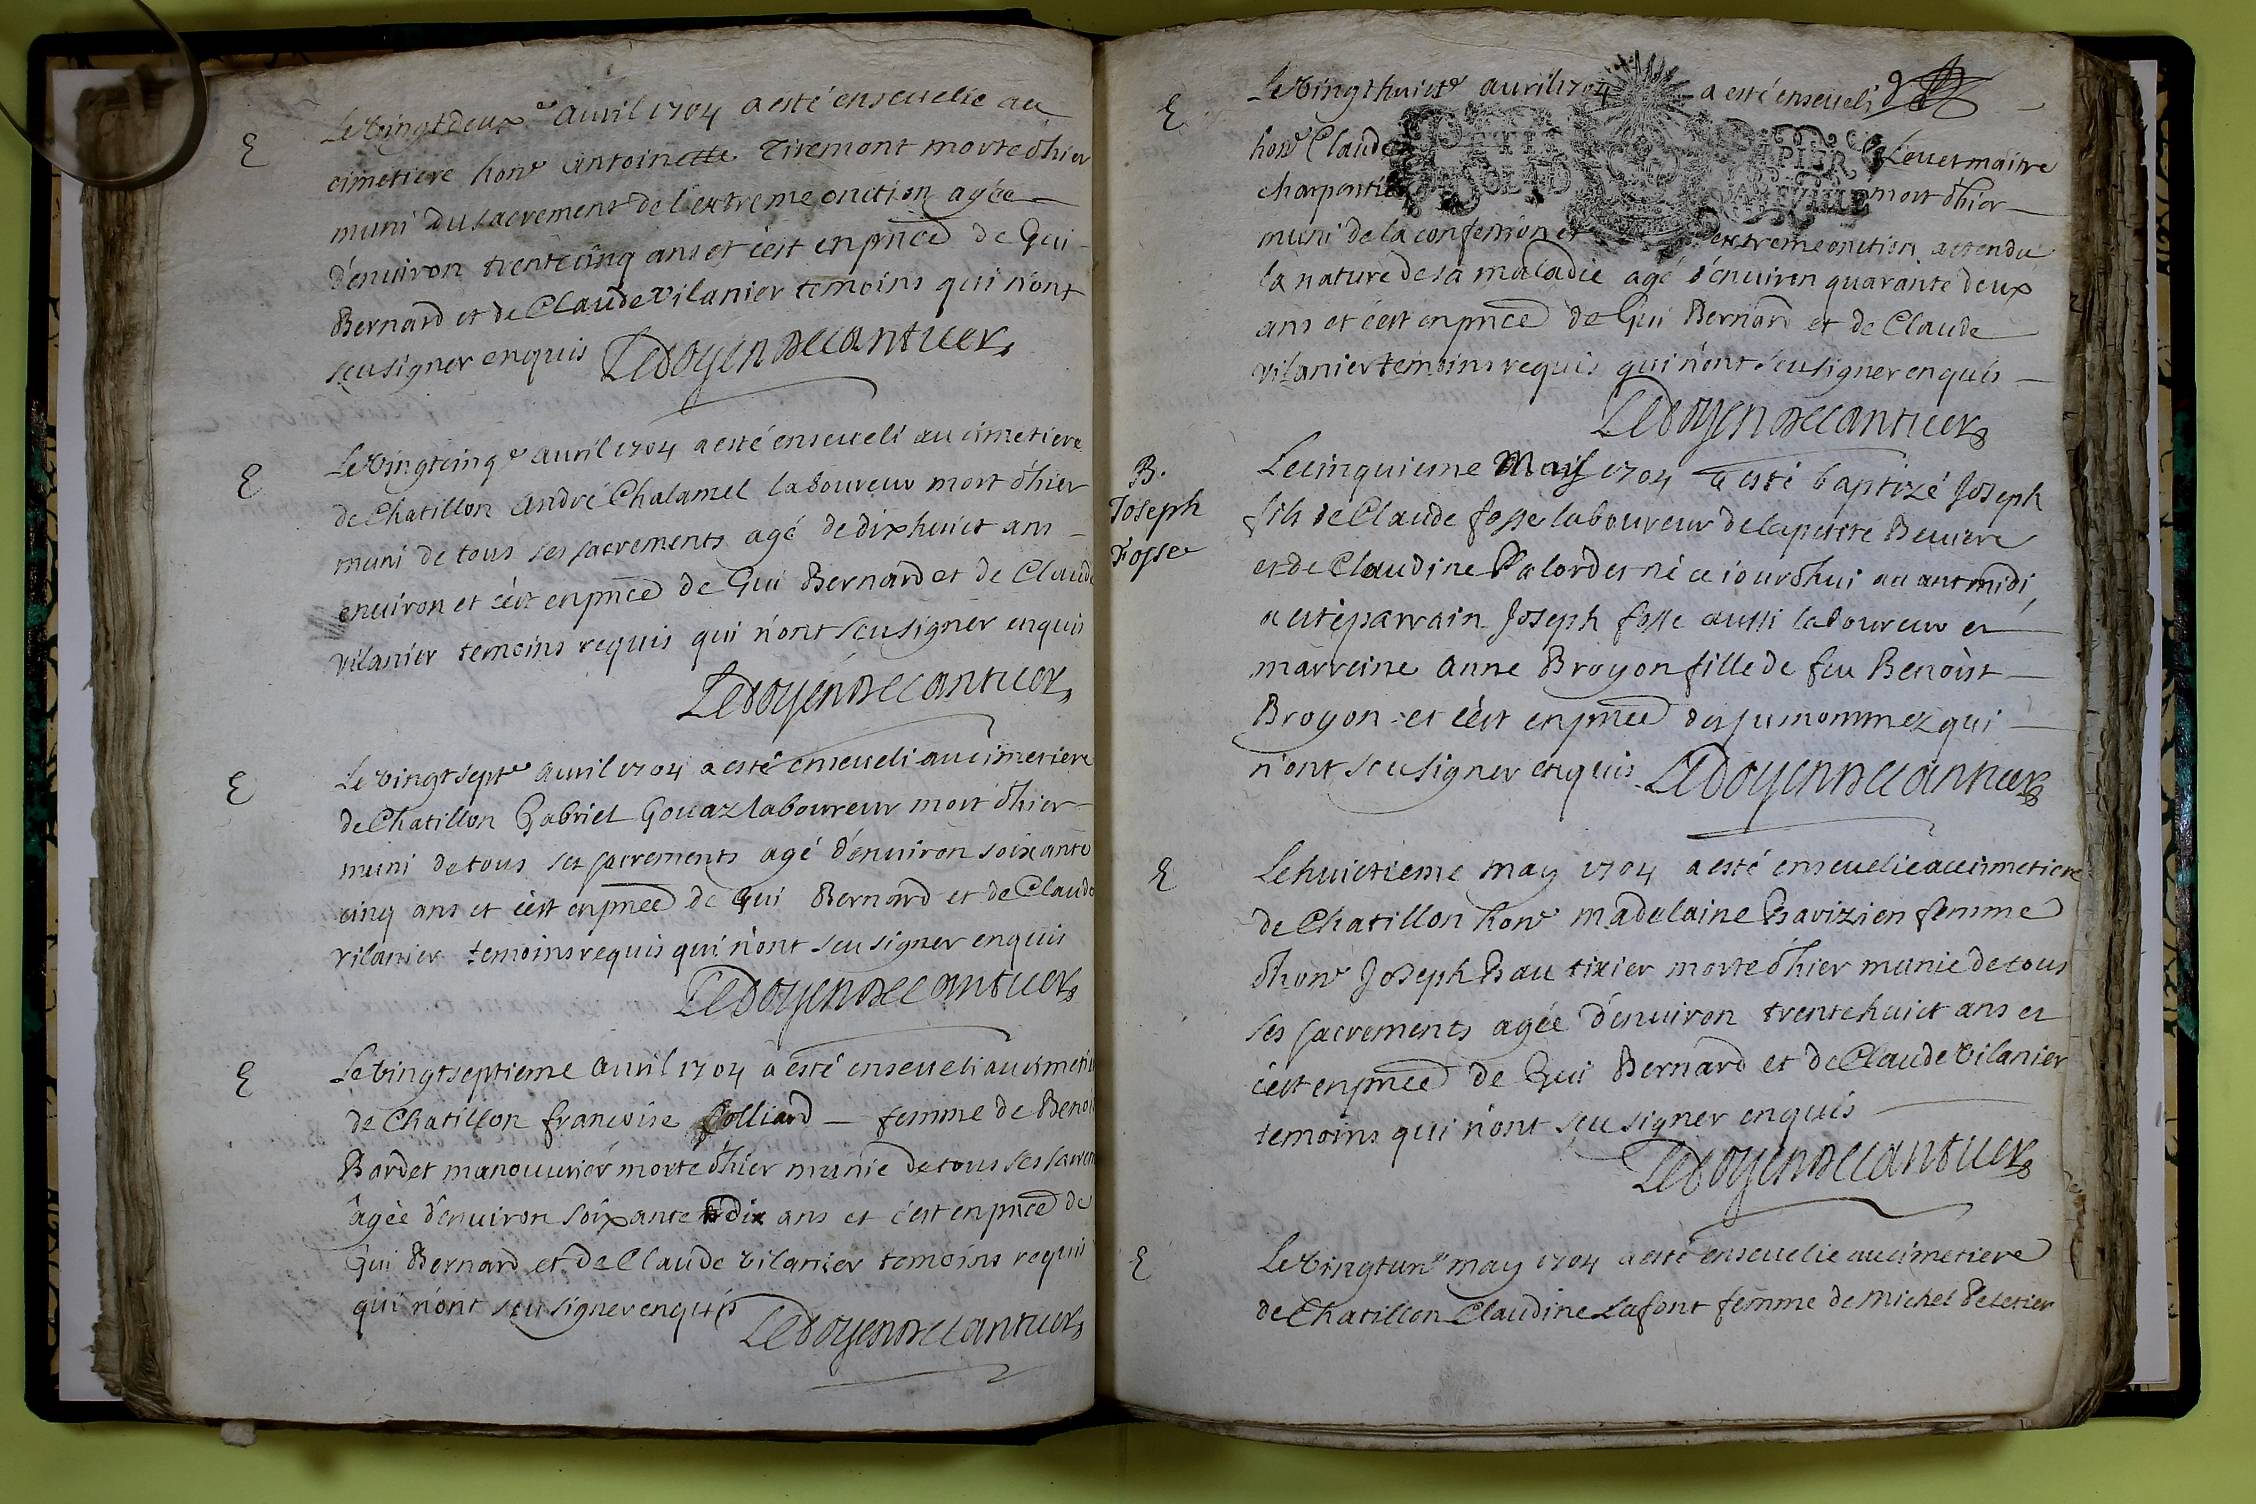 E
Le vingtdeuxe avril 1704 a esté ensevelie au
cimetiere hone Antoinette Tiremont morte d'hier
muni du sacrement de l'extreme onction agée
d'environ trente cinq ans et c'est en pnce de Gui
Bernard et de Claude Vilanier temoins qui n'ont
sçeu signer enquis Ledoyen Decantuer
E
Le vingtcinqe avril 1704 a esté enseveli au cimetiere
de Chatillon André Chalamel laboureur mort d'hier
muni de tous ses sacrements agé de dix huict ans
environ et c'est en pnce de Gui Bernard et de Claude
Vilanier temoins requis qui n'ont sceu signer enquis
Ledoyen Decantuer
E
Le vingt septe avril 1704 a esté enseveli au cimetiere
de Chatillon Gabriel Gouaz laboureur mort d'hier
muni de tous ses sacrements agé d'environ soixante
cinq ans et c'est en pnce de Gui Bernard et de Claude
Vilanier temoins requis qui n'ont sceu signer enquis
Ledoyen Decantuer
E
Le vingtseptieme avril 1704 a esté enseveli au cimetier
de Chatillon francoise Colliard femme de Benoi
Bardet manouvrier morte d'hier munie de tous ses sacrem
âgée d'environ soixante dix ans et c'est en pnce de
Gui Bernard et de Claude Vilanier temoins requis
qui n'ont sceu signer enquis
Ledoyen Decantuer
E
Le vingt huicte avril 1704 a esté enseveli
hone Claude Levet maitre
charpentier mort d'hier
muni de la confession et extreme onction attendu
la nature de sa maladie agé d'environ quarante deux
ans et c'est en pnce de Gui Bernard et de Claude
Vilanier temoins requis qui n'ont sceu signer enquis
Ledoyen Decantuer
B.
Joseph
Fosse
Le cinquieme May 1704 a esté baptizé Joseph
fils de Claude fosse laboureur de la petite Beviere
et de Claudine Palordet né ce iourd'hui au antmidi
a esté parrain Joseph fosse aussi laboureur et
marreine Anne Broyon fille de feu Benoist
Broyon et c'est en pnce des sunommez qui
n'ont sceu signer enquis Ledoyen Decantuer
E
Le huictieme may 1704 a esté ensevelie au cimetiere
de Chatillon hone Madelaine Bavizien femme
d'hone Joseph Bau tixier morte d'hier munie de tous
ses sacrements agée d'environ trente huict ans et
c'est en pnce de Gui Bernard et de Claude Vilanier
temoins qui n'ont sçeu signer enquis
Ledoyen Decantuer
E
Le vingtune may 1704 a esté ensevelie au cimetiere
de Chatillon Claudine Lafont femme de Michel Peletier